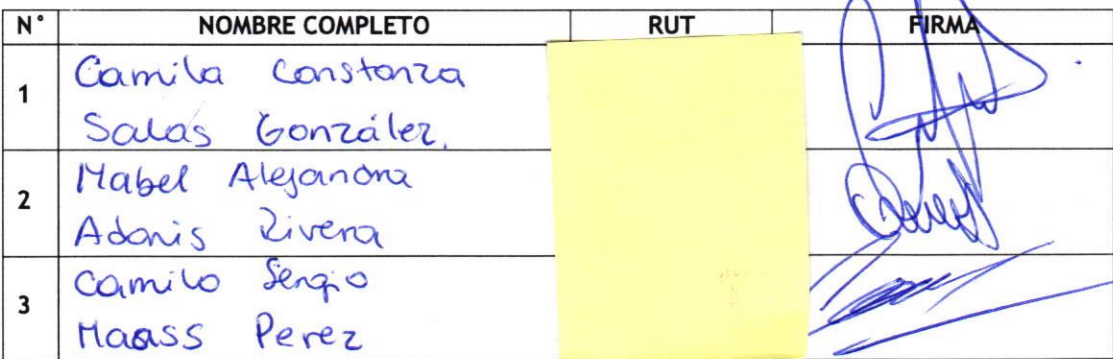 N° NOMBRE COMPLETO RUT FIRMA
1 Camila Constanza
Salas González.
2 Mabel Alejandra
Adonis Rivera
3 Camilo Sergio
Maass Perez